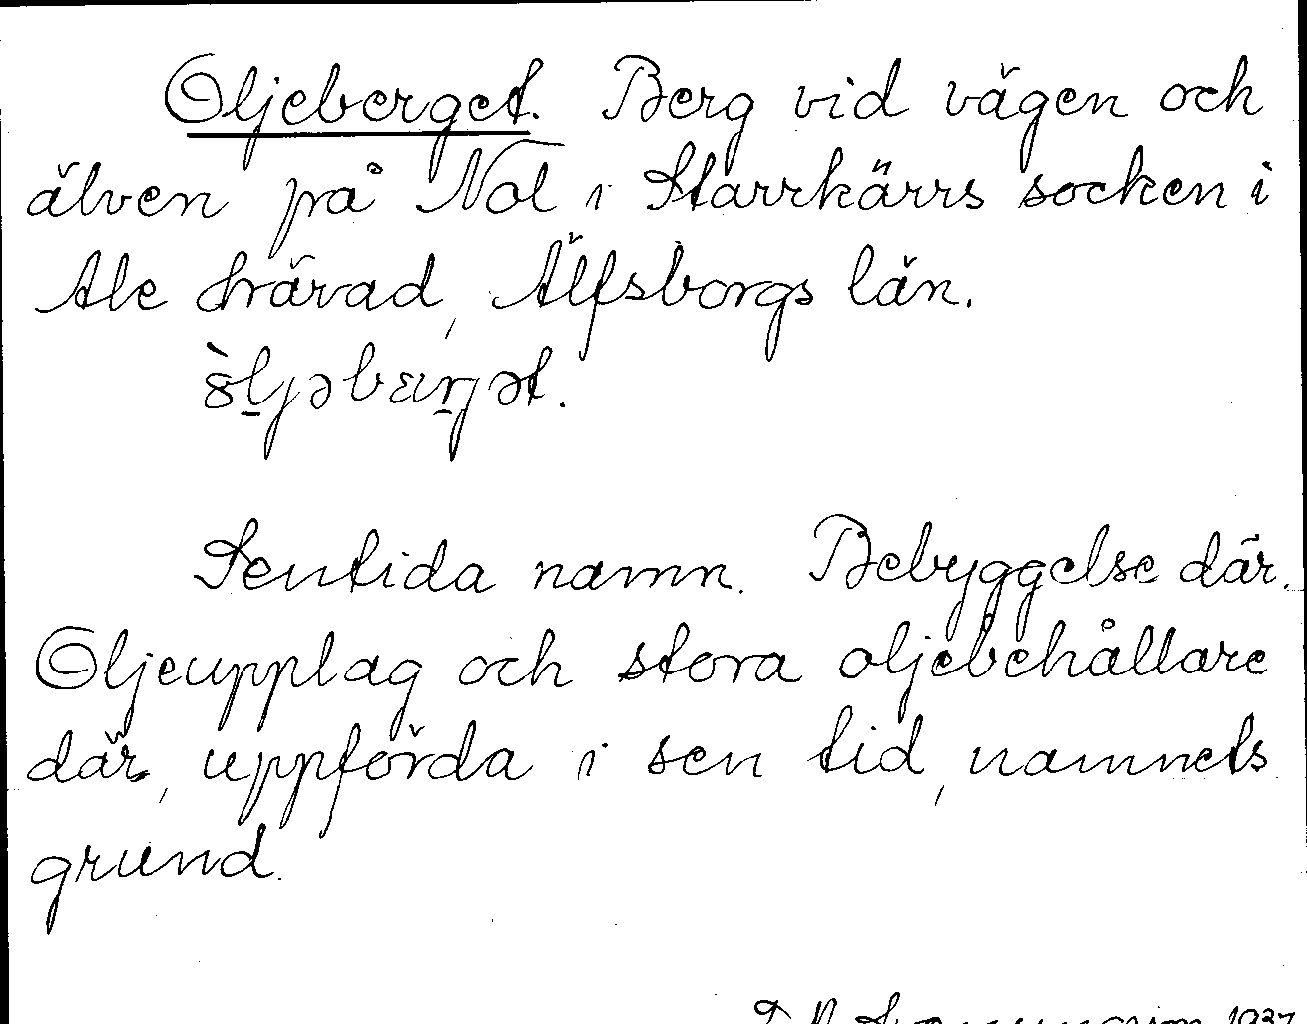 Oljeberget. Berg vid vägen och
älven på Nol i Starrkärrs socken i
Ale härad, Älfsborgs län.
Sentida namn. Bebyggelse där.
Oljeupplag och stora oljebehållare
där, uppförda i sen tid, namnets
grund.
1937